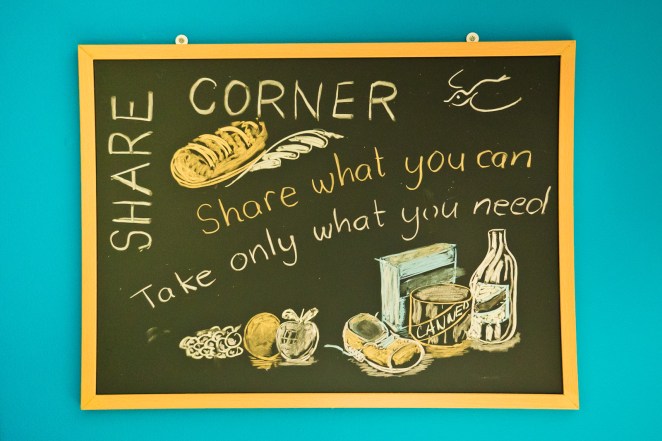 SHARE
CORNER
Share what you can
Take only what you need
CANNED